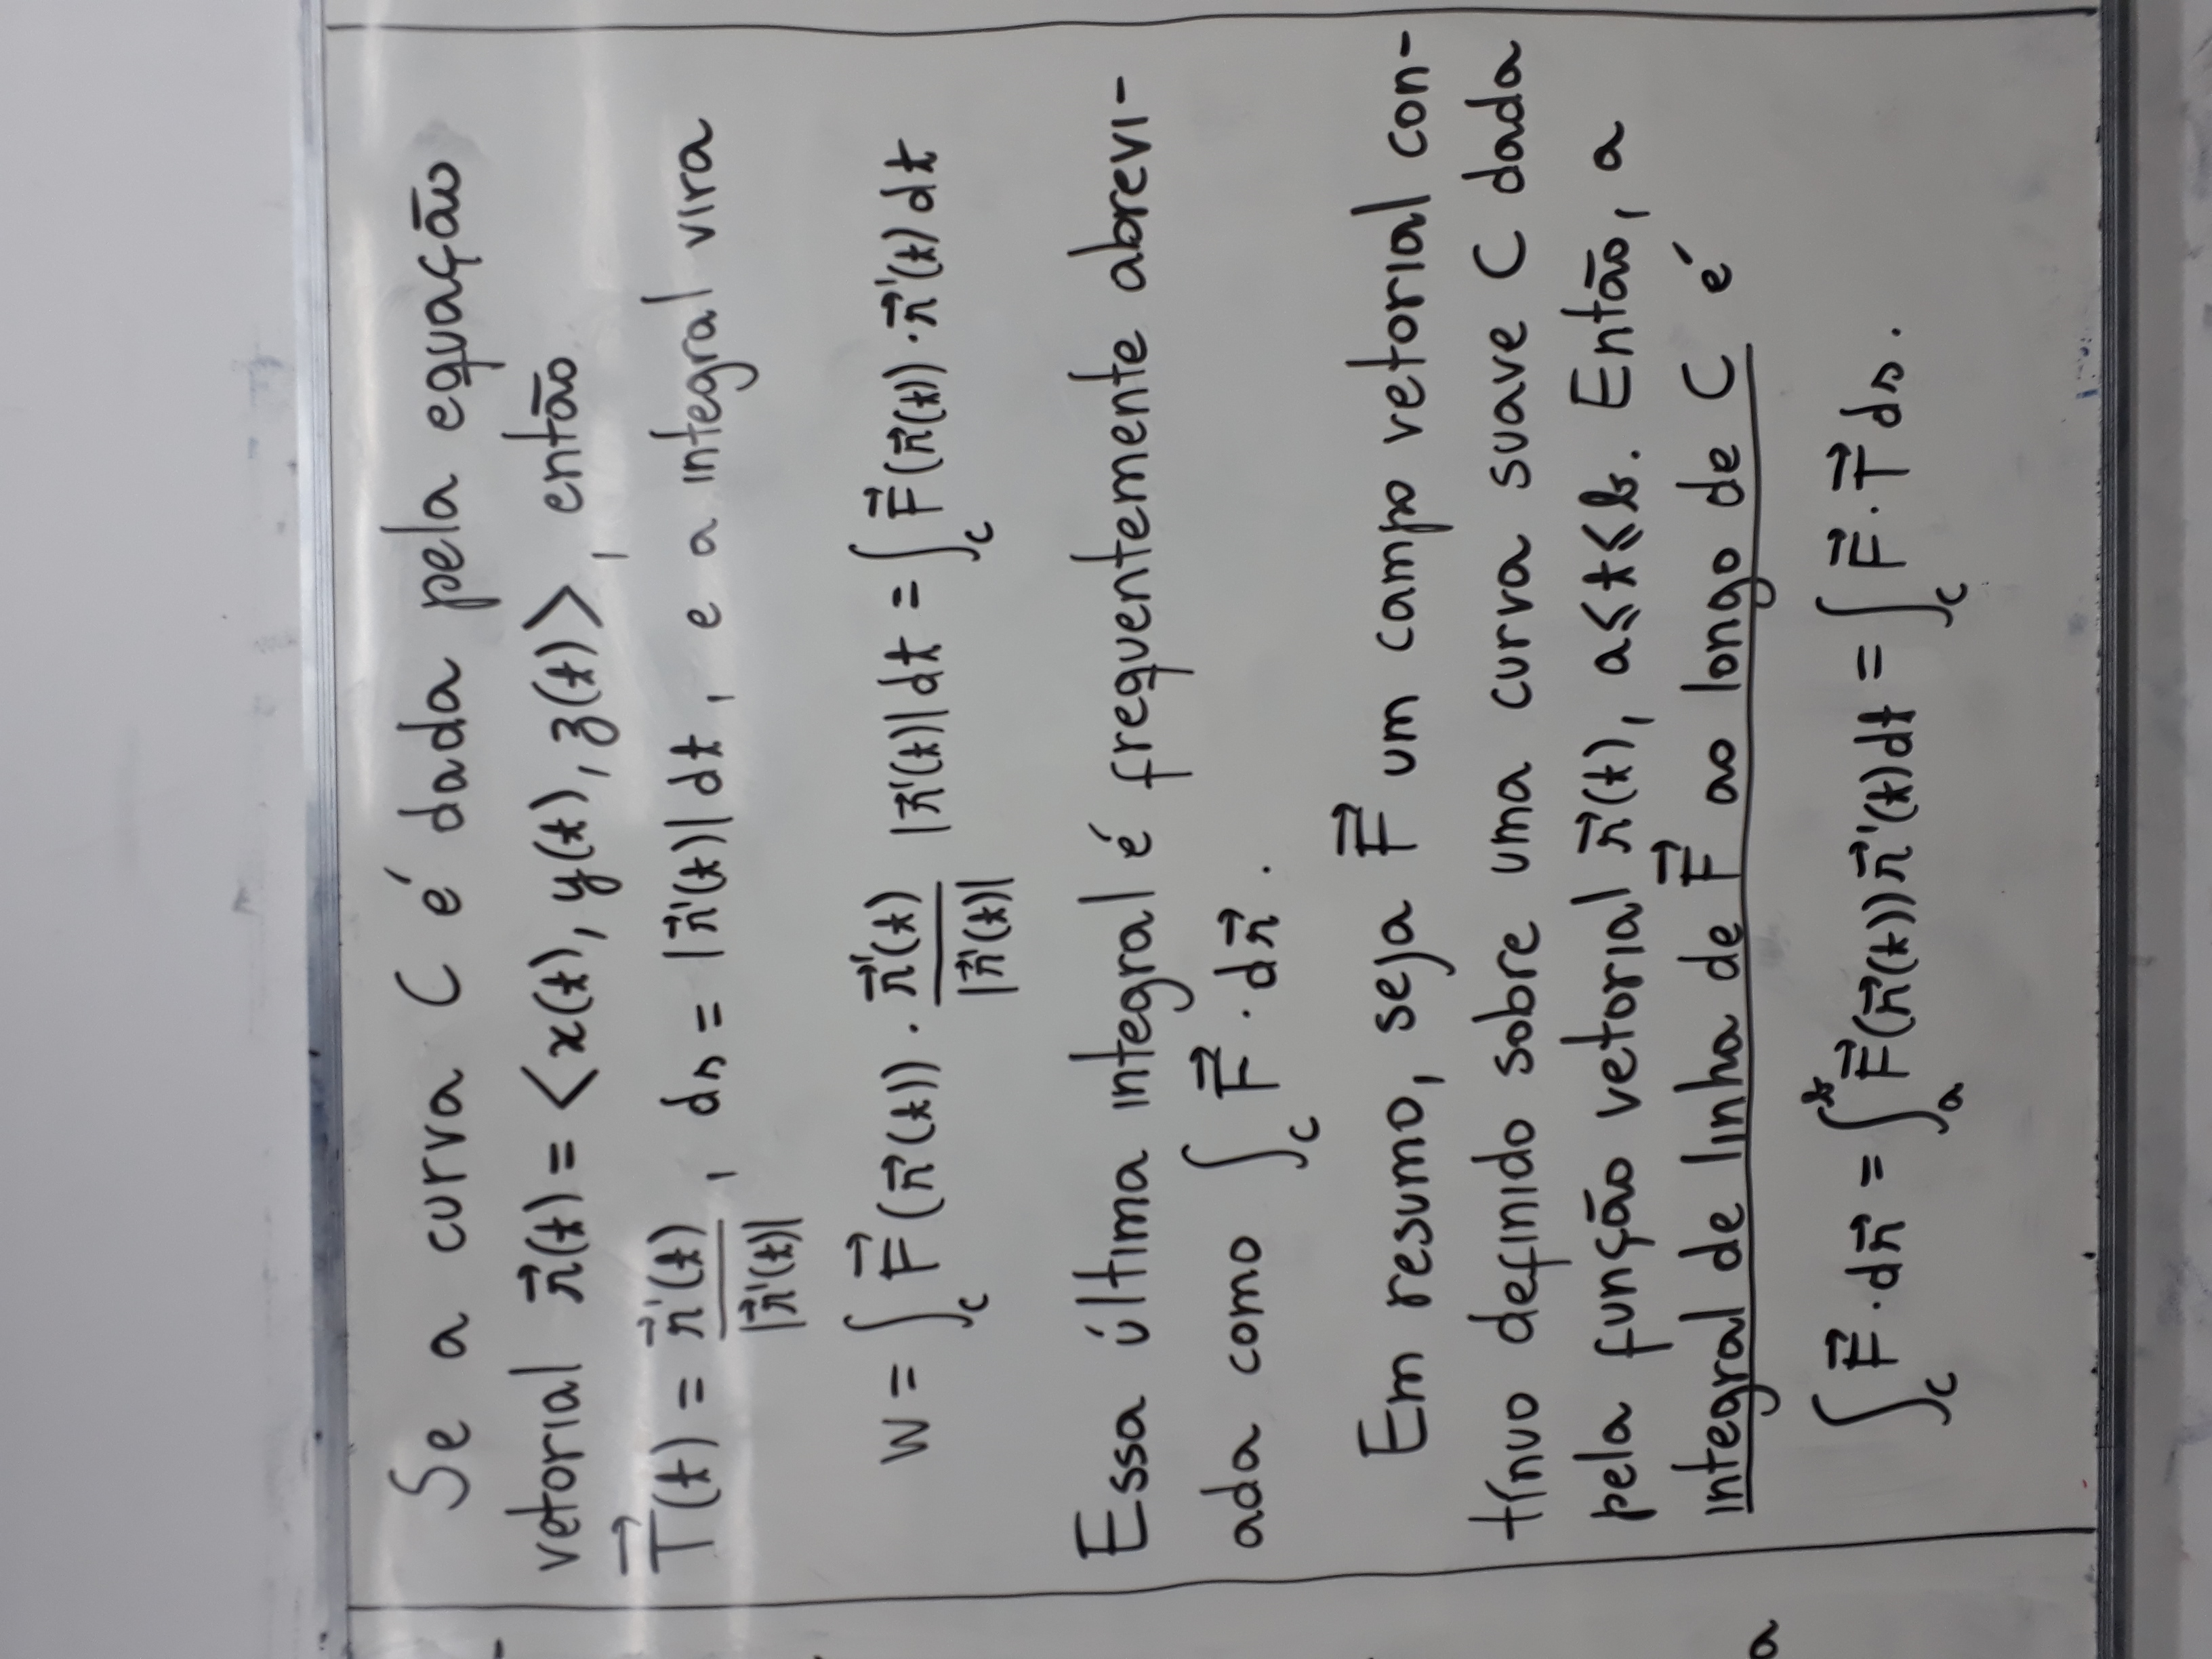 Se a curva C é dada pela equação
vetorial r⃗(t) = <x(t), y(t), z(t)>, então
T⃗(t) = r⃗'(t)/|r⃗'(t)|, ds = |r⃗'(t)| dt, e a integral vira
W = ∫_C F⃗(r⃗(t)) · r⃗'(t)/|r⃗'(t)| |r⃗'(t)| dt = ∫_C F⃗(r⃗(t)) · r⃗'(t) dt
Essa última integral é frequentemente abrevi-
ada como ∫_C F⃗ · dr⃗.
Em resumo, seja F⃗ um campo vetorial con-
tínuo definido sobre uma curva suave C dada
pela função vetorial r⃗(t), a ≤ t ≤ b. Então, a
integral de linha de F⃗ ao longo de C é
a
∫_C F⃗ · dr⃗ = ∫_a^b F⃗(r⃗(t)) r⃗'(t) dt = ∫_C F⃗ · T⃗ ds.